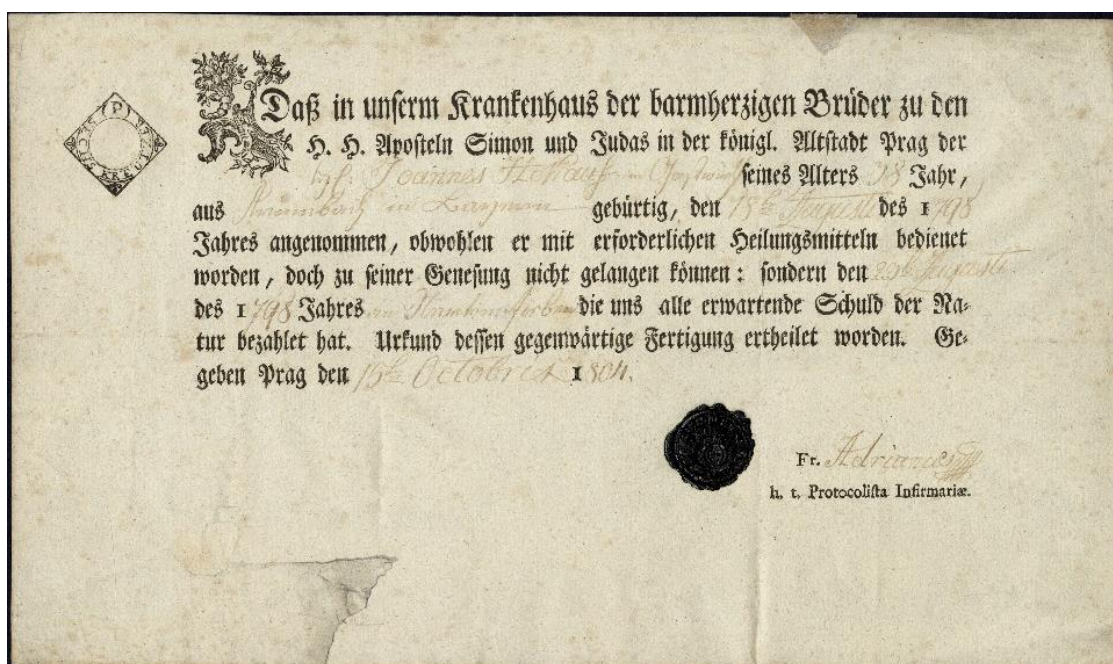 Daß in unserm Krankenhaus der barmherzigen Brüder zu den
H. H. Aposteln Simon und Judas in der königl. Altstadt Prag der
Joannes seines Alters 38 Jahr,
aus in gebürtig, den 18 des 1798
Jahres angenommen, obwohlen er mit erforderlichen Heilungsmitteln bedienet
worden, doch zu seiner Genesung nicht gelangen können: sondern den 29
des 1798 Jahres die uns alle erwartende Schuld der Na-
tur bezahlet hat. Urkund dessen gegenwärtige Fertigung ertheilet worden. Ge-
geben Prag den Octobris 1804.
Fr. Adrianus
h. t. Protocollista Infirmariæ.